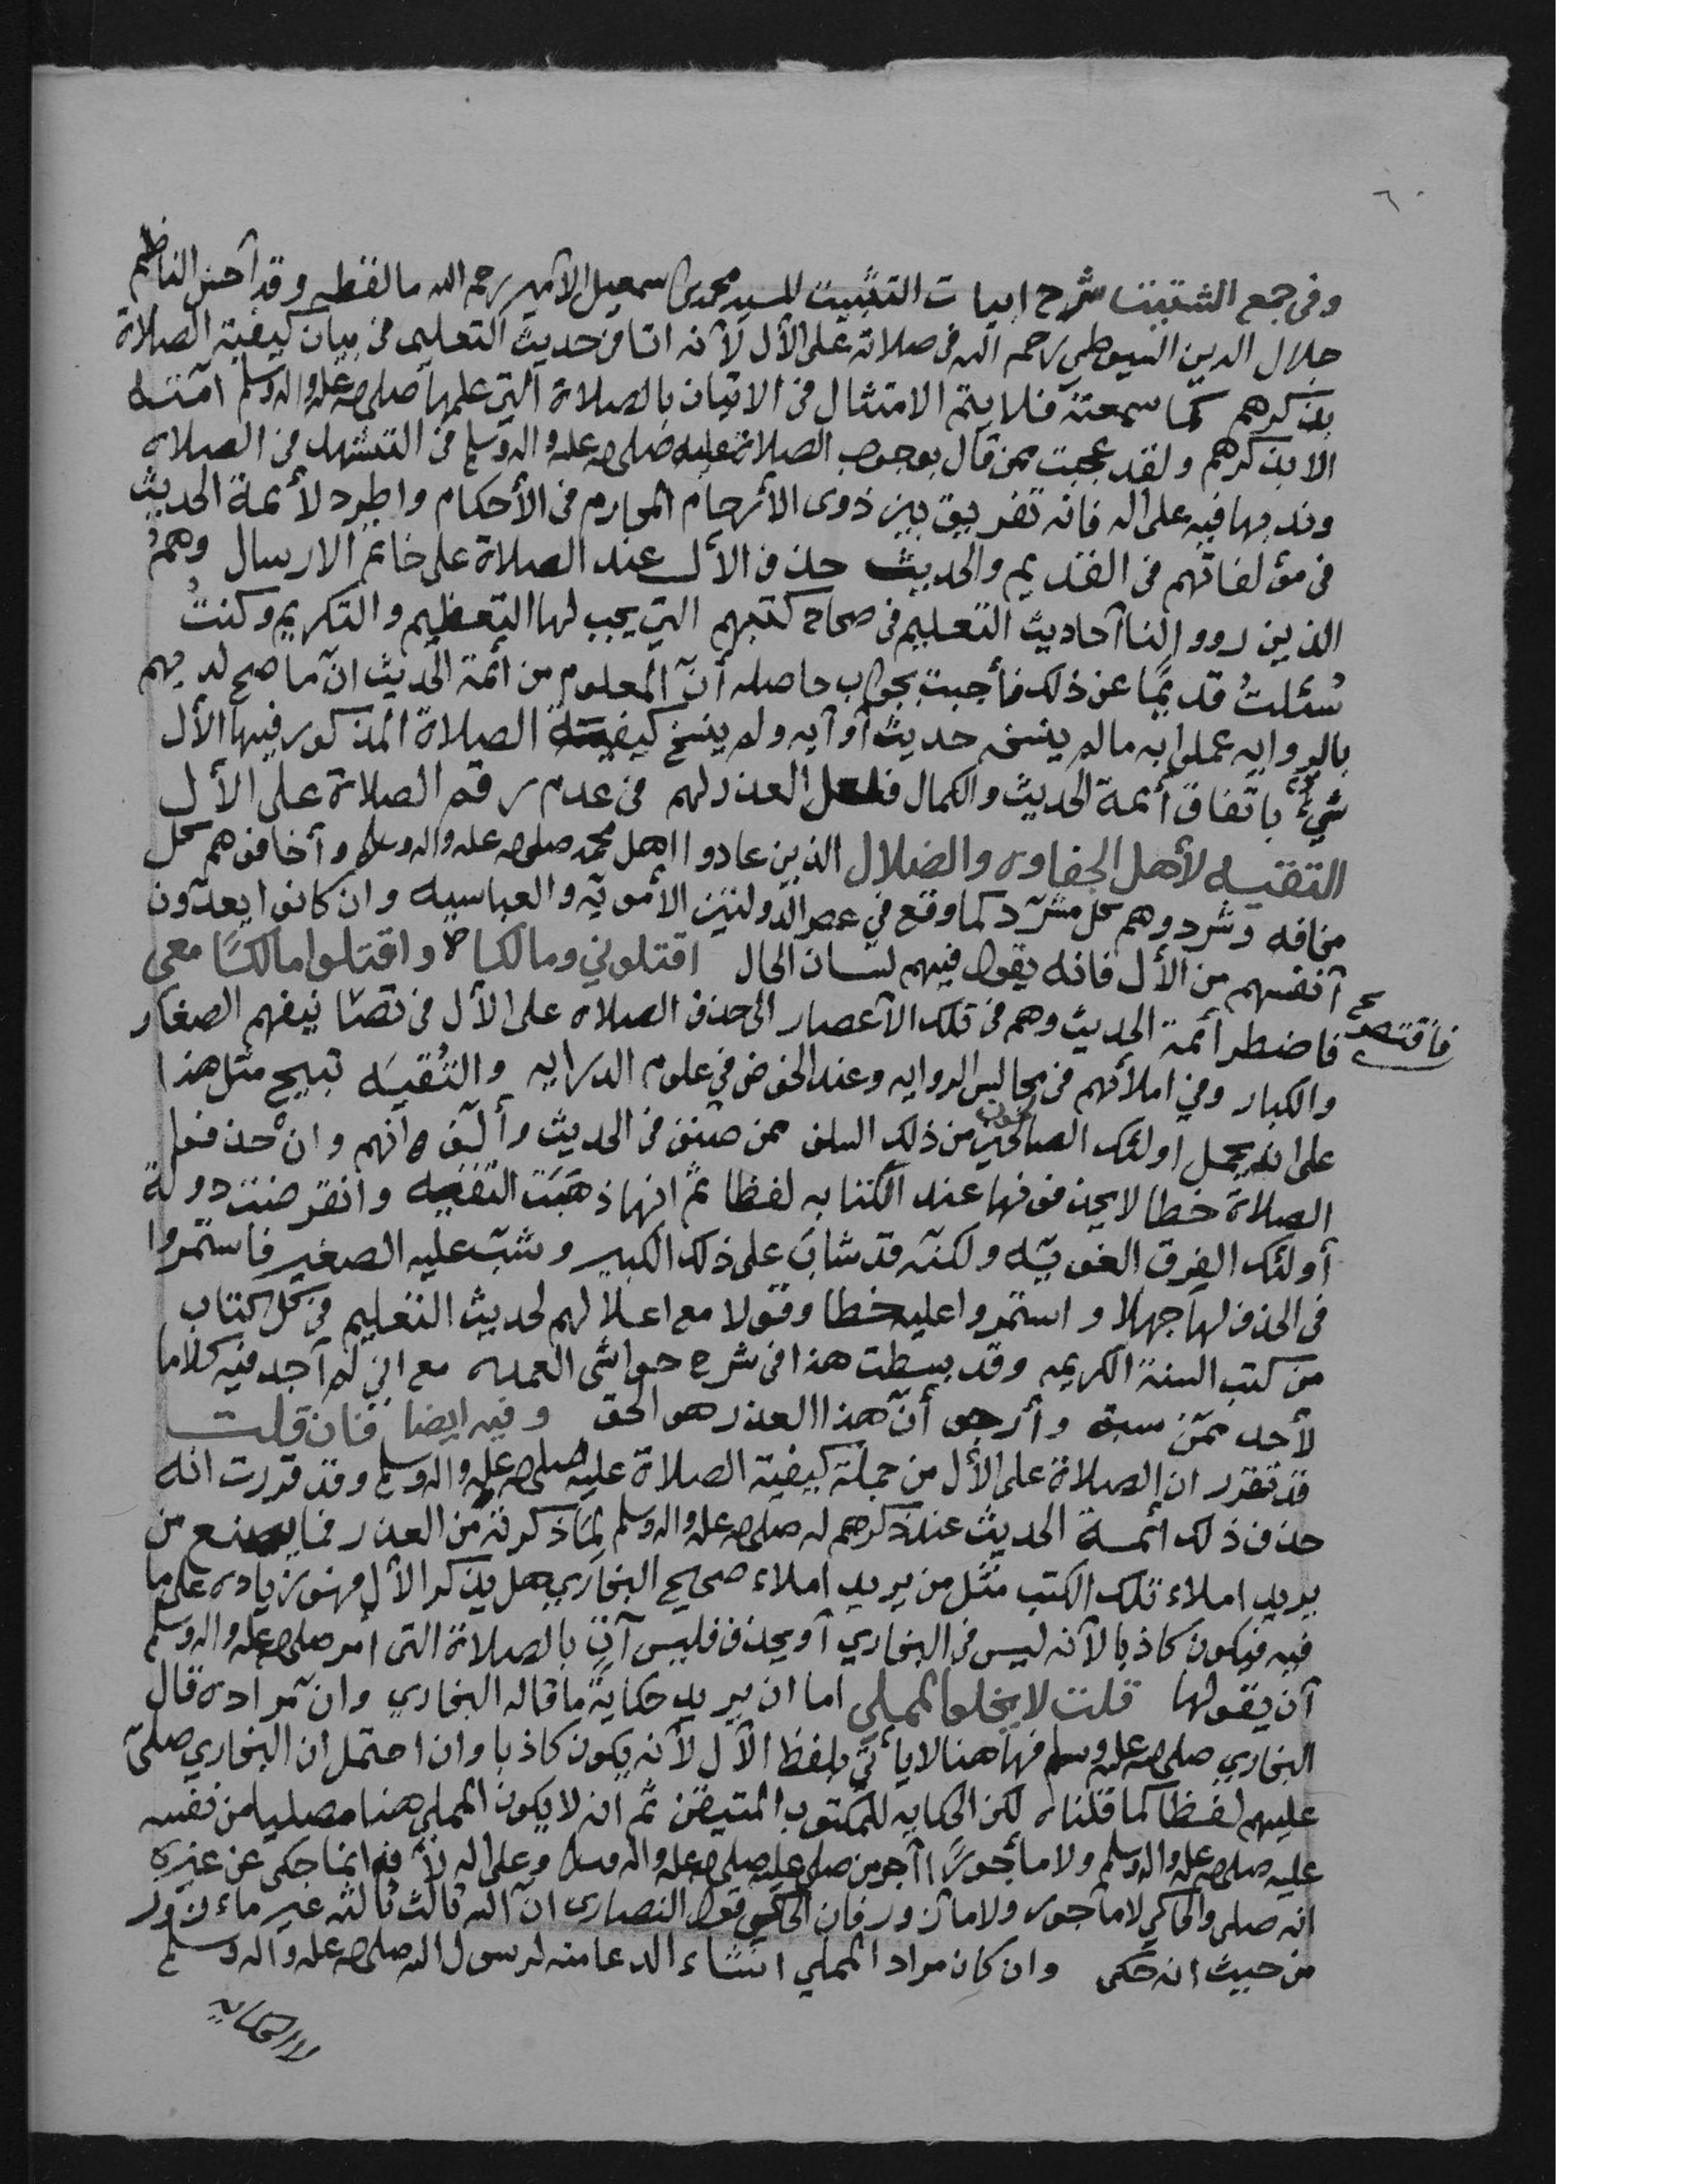 ٦٠
وفي جمع الشتيت شرح ابيات التثبيت للسيد محمد بن اسمعيل الامير رحمه الله ما لفظه وقد أحسن الناظم
جلال الدين السيوطي رحمه الله في صلاته على الآل لأنه اتا من حديث التعليم في بيان كيفية الصلاة
بذكرهم كما سمعته فلا يتم الامتثال في الاتيان بالصلاة التي علمها صلى الله عليه واله وسلم امته
الا بذكرهم ولقد عجبت ممن قال بوجوب الصلاة عليه صلى الله عليه واله وسلم في التشهد في الصلاه
وندبها فيه على اله فانه تفريق بين ذوى الأرحام المحارم في الأحكام واطرد لأئمة الحديث
في مؤلفاتهم في القديم والحديث حذف الأل عند الصلاة على خاتم الارسال وهم
الذين رووا لنا أحاديث التعليم في صحاح كتبهم التي يجب لها التعظيم والتكريم وكنتُ
سُئلتُ قديمًا عن ذلك فأجبت بجواب حاصله أنّ المعلوم من أئمة الحديث انّ ما صح لديهم
بالروايه عملوا به ما لم ينسخه حديث أو آيه ولم ينسخ كيفية الصلاة المذكور فيها الأل
شيءٌ باتفاق أئمة الحديث والكمال فلعل العذر لهم في عدم رقم الصلاة على الأل
التقيه لأهل الجفاوه والضلال الذين عادوا اهل محمد صلى الله عليه واله وسلم وأخافوهم كل
مخافه وشردوهم كل مشرّد كما وقع في عصر الدولتين الأمويّه والعباسيه وان كانوا يعدّون
أنفسهم من الأل فانه يقول فيهم لسان الحال اقتلوني ومالكا واقتلوا مالكًا معي
فاضطر أئمة الحديث وهم في تلك الأعصار الى حذف الصلاه على الأل في تصانيفهم الصغار
فاقتصر
والكبار وفي املائهم في مجالس الروايه وعند الخوض في علوم الدرايه والتُقيَه تبيح مثل هذا
على انه يحمل اولئك الصالحون من ذلك السلف ممن صنف في الحديث وألّف انهم وان حذفوا
الصلاة خطا لا يحذفونها عند الكتابه لفظا ثمّ انها ذهبَت التقيه وانقرضت دولة
أولئك الفرق الغويّه ولكنّه قد شابَ على ذلك الكبير وشبّ عليه الصغير فاستمروا
في الحذف لها جهلا واستمروا عليه خطا وقولا مع املالهم لحديث التعليم في كل كتاب
من كتب السنة الكريمه وقد بسطت هذا في شرح حواشي العمده مع اني لم أجد فيه كلاما
لأحد ممّن سبق وأرجو أنّ هذا العذر هو الحق وفيه ايضا فان قلت
قد تقرر ان الصلاة على الأل من جملة كيفية الصلاة عليه صلى الله عليه واله وسلم وقد قررت انه
حذف ذلك ائمة الحديث عند ذكرهم له صلى الله عليه واله وسلم لمّا ذكرتَه من العذر فما يصنع من
يريد املاء تلك الكتب مثل من يريد املاء صحيح البخاري هل يذكر الأل فهو زياده على ما
فيه فيكون كاذبا لأنه ليس في البخاري أو يحذف فليس آتٍ بالصلاة التى امر صلى الله عليه واله وسلم
أن يقولها قلت لا يخلو المملي اما ان يريد حكاية ما قاله البخاري وان مراده قال
البخاري صلى الله عليه وسلم فهاهنا لا يأتي بلفظ الأل لأنه يكون كاذبا وان احتمل ان البخاري صلىّ
عليهم لفظا كما قلناه لكن الحكايه للمكتوب المتيقن ثم انه لا يكون المملي هنا مصليا من نفسه
عليه صلى الله عليه واله وسلم ولا مأجورًا أجر من صلى عليه صلى الله عليه واله وسلم وعلى اله لأنه انما حكى عن غيره
انه صلى والحاكي لا مأجور ولا مازور فان الحاكي قول النصارى ان الله ثالث ثلاثه غير مأزور
من حيث انه حكى وان كان مراد المملي انشاء الدعا منه لرسول الله صلى الله عليه واله وسلم
لا الحكايه